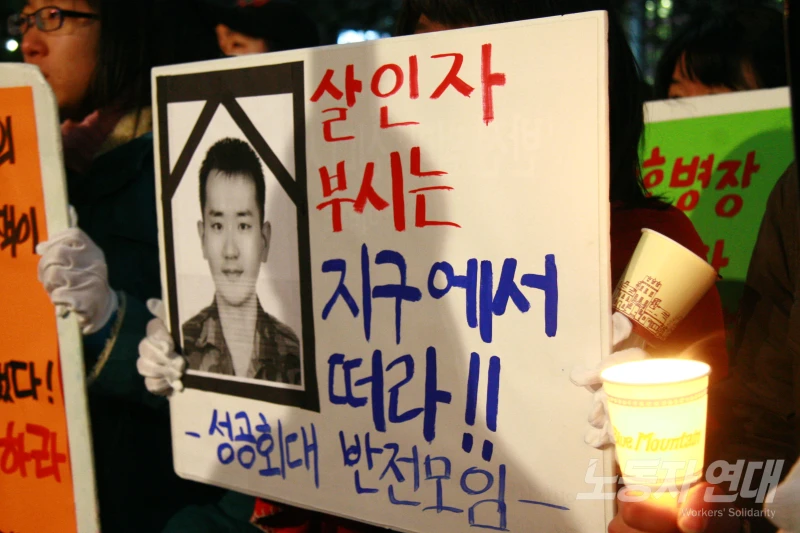 살인자
부시는
지구에서
떠라!!
- 성공회대 반전모임 -
의
책이
다!
하라
병장
Mountain
노동자 연대
Workers' Solidarity